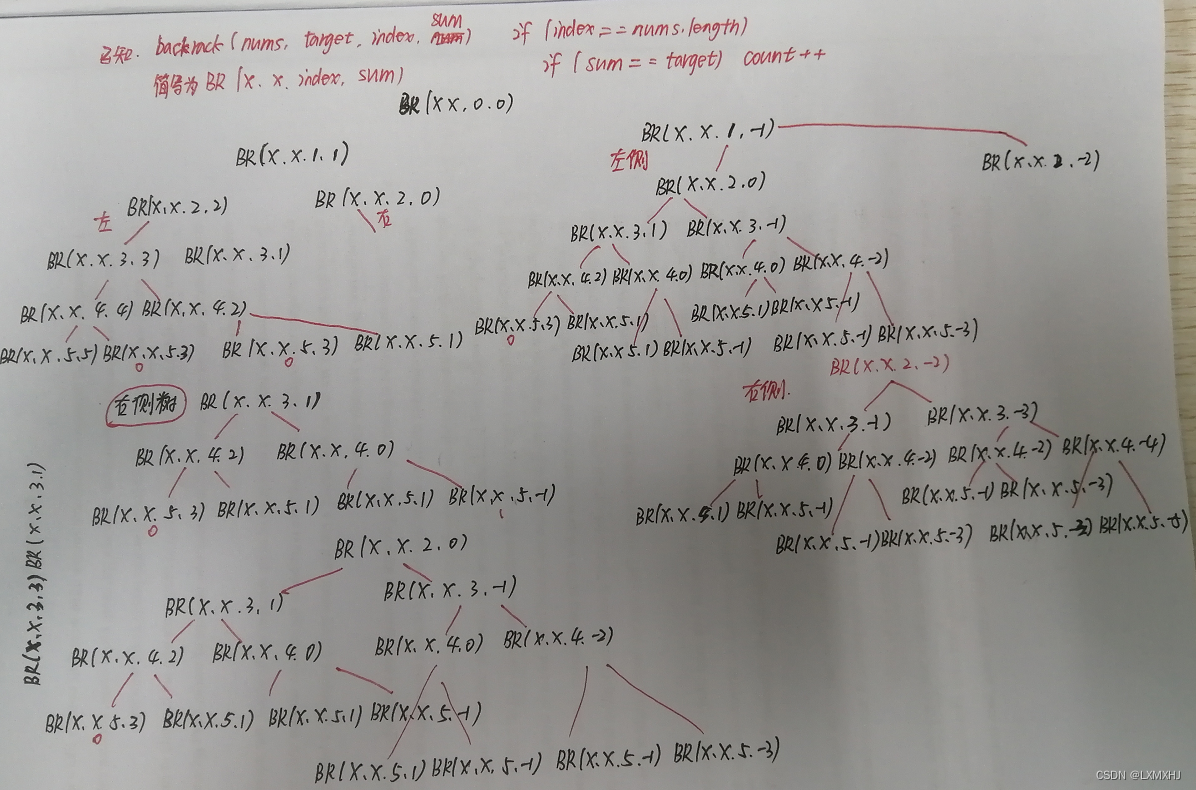 已知. backrack(nums, target, index, sum) if (index == nums.length)
简写为 BR(x. x. index, sum) if (sum == target) count++
BR(x x, 0.0)
BR(x. x. 1, 1)
BR(x, x. 2, 2) BR(x, x. 2, 0)
左 右
BR(x. x. 3, 3) BR(x. x. 3, 1)
BR(x, x, 4, 4) BR(x, x, 4, 2)
BR(x, x. 5, 5) BR(x, x, 5 3) BR(x, x, 5, 3) BR(x, x. 5, 1)
0 0
右侧树 BR(x, x, 3, 1)
BR(x, x, 4, 2) BR(x, x, 4, 0)
BR(x, x. 5, 3) BR(x, x, 5, 1) BR(x, x, 5, 1) BR(x, x, 5, -1)
0
BR(x, x. 2, 0)
BR(x, x. 3, 1) BR(x, x. 3, -1)
BR(x, x, 4, 2) BR(x, x, 4 0) BR(x, x, 4, 0) BR(x. x 4, -2)
BR(x, x. 5, 3) BR(x, x. 5, 1) BR(x, x. 5, 1) BR(x, x, 5, -1)
0
BR(x. x. 5, 1) BR(x. x, 5, -1) BR(x. x. 5, -1) BR(x. x. 5, -3)
BR(x, x, 3, 3) BR(x, x, 3, 1)
BR(x. x. 1, -1)
左侧 BR(x, x. 2, -2)
BR(x, x. 2, 0)
BR(x. x. 3, 1) BR(x. x. 3, -1)
BR(x, x, 4, 2) BR(x, x, 4, 0) BR(x, x. 4, 0) BR(x, x, 4, -2)
BR(x, x. 5, 3) BR(x, x. 5, 1) BR(x, x 5, 1) BR(x, x, 5, -1)
0
BR(x. x 5, 1) BR(x. x. 5, -1) BR(x. x. 5, -1) BR(x. x, 5, -3)
BR(x. x. 2, -2)
右侧.
BR(x, x, 3, -1) BR(x. x. 3, -3)
BR(x, x 4, 0) BR(x, x. 4, -2) BR(x, x. 4, -2) BR(x, x 4, -4)
BR(x. x. 5, 1) BR(x. x. 5, -1) BR(x. x. 5, -1) BR(x, x. 5, -3)
BR(x, x. 5, -1) BR(x, x. 5, -3) BR(x, x. 5, -3) BR(x, x. 5, -5)
CSDN @LXMXHJ